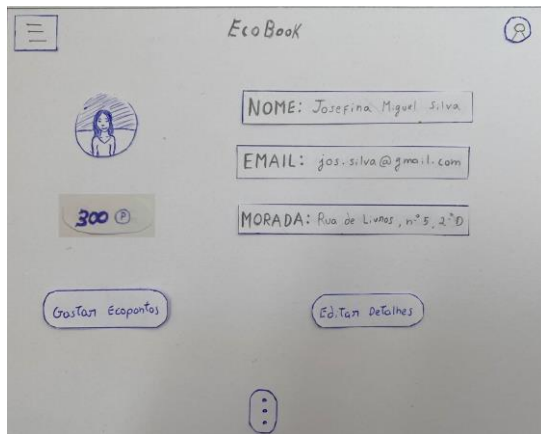 EcoBook
NOME: Josefina Miguel Silva
EMAIL: jos.silva@gmail.com
300 P
MORADA: Rua de Livros, nº5, 2ºD
Gastar Ecopontos
Editar Detalhes